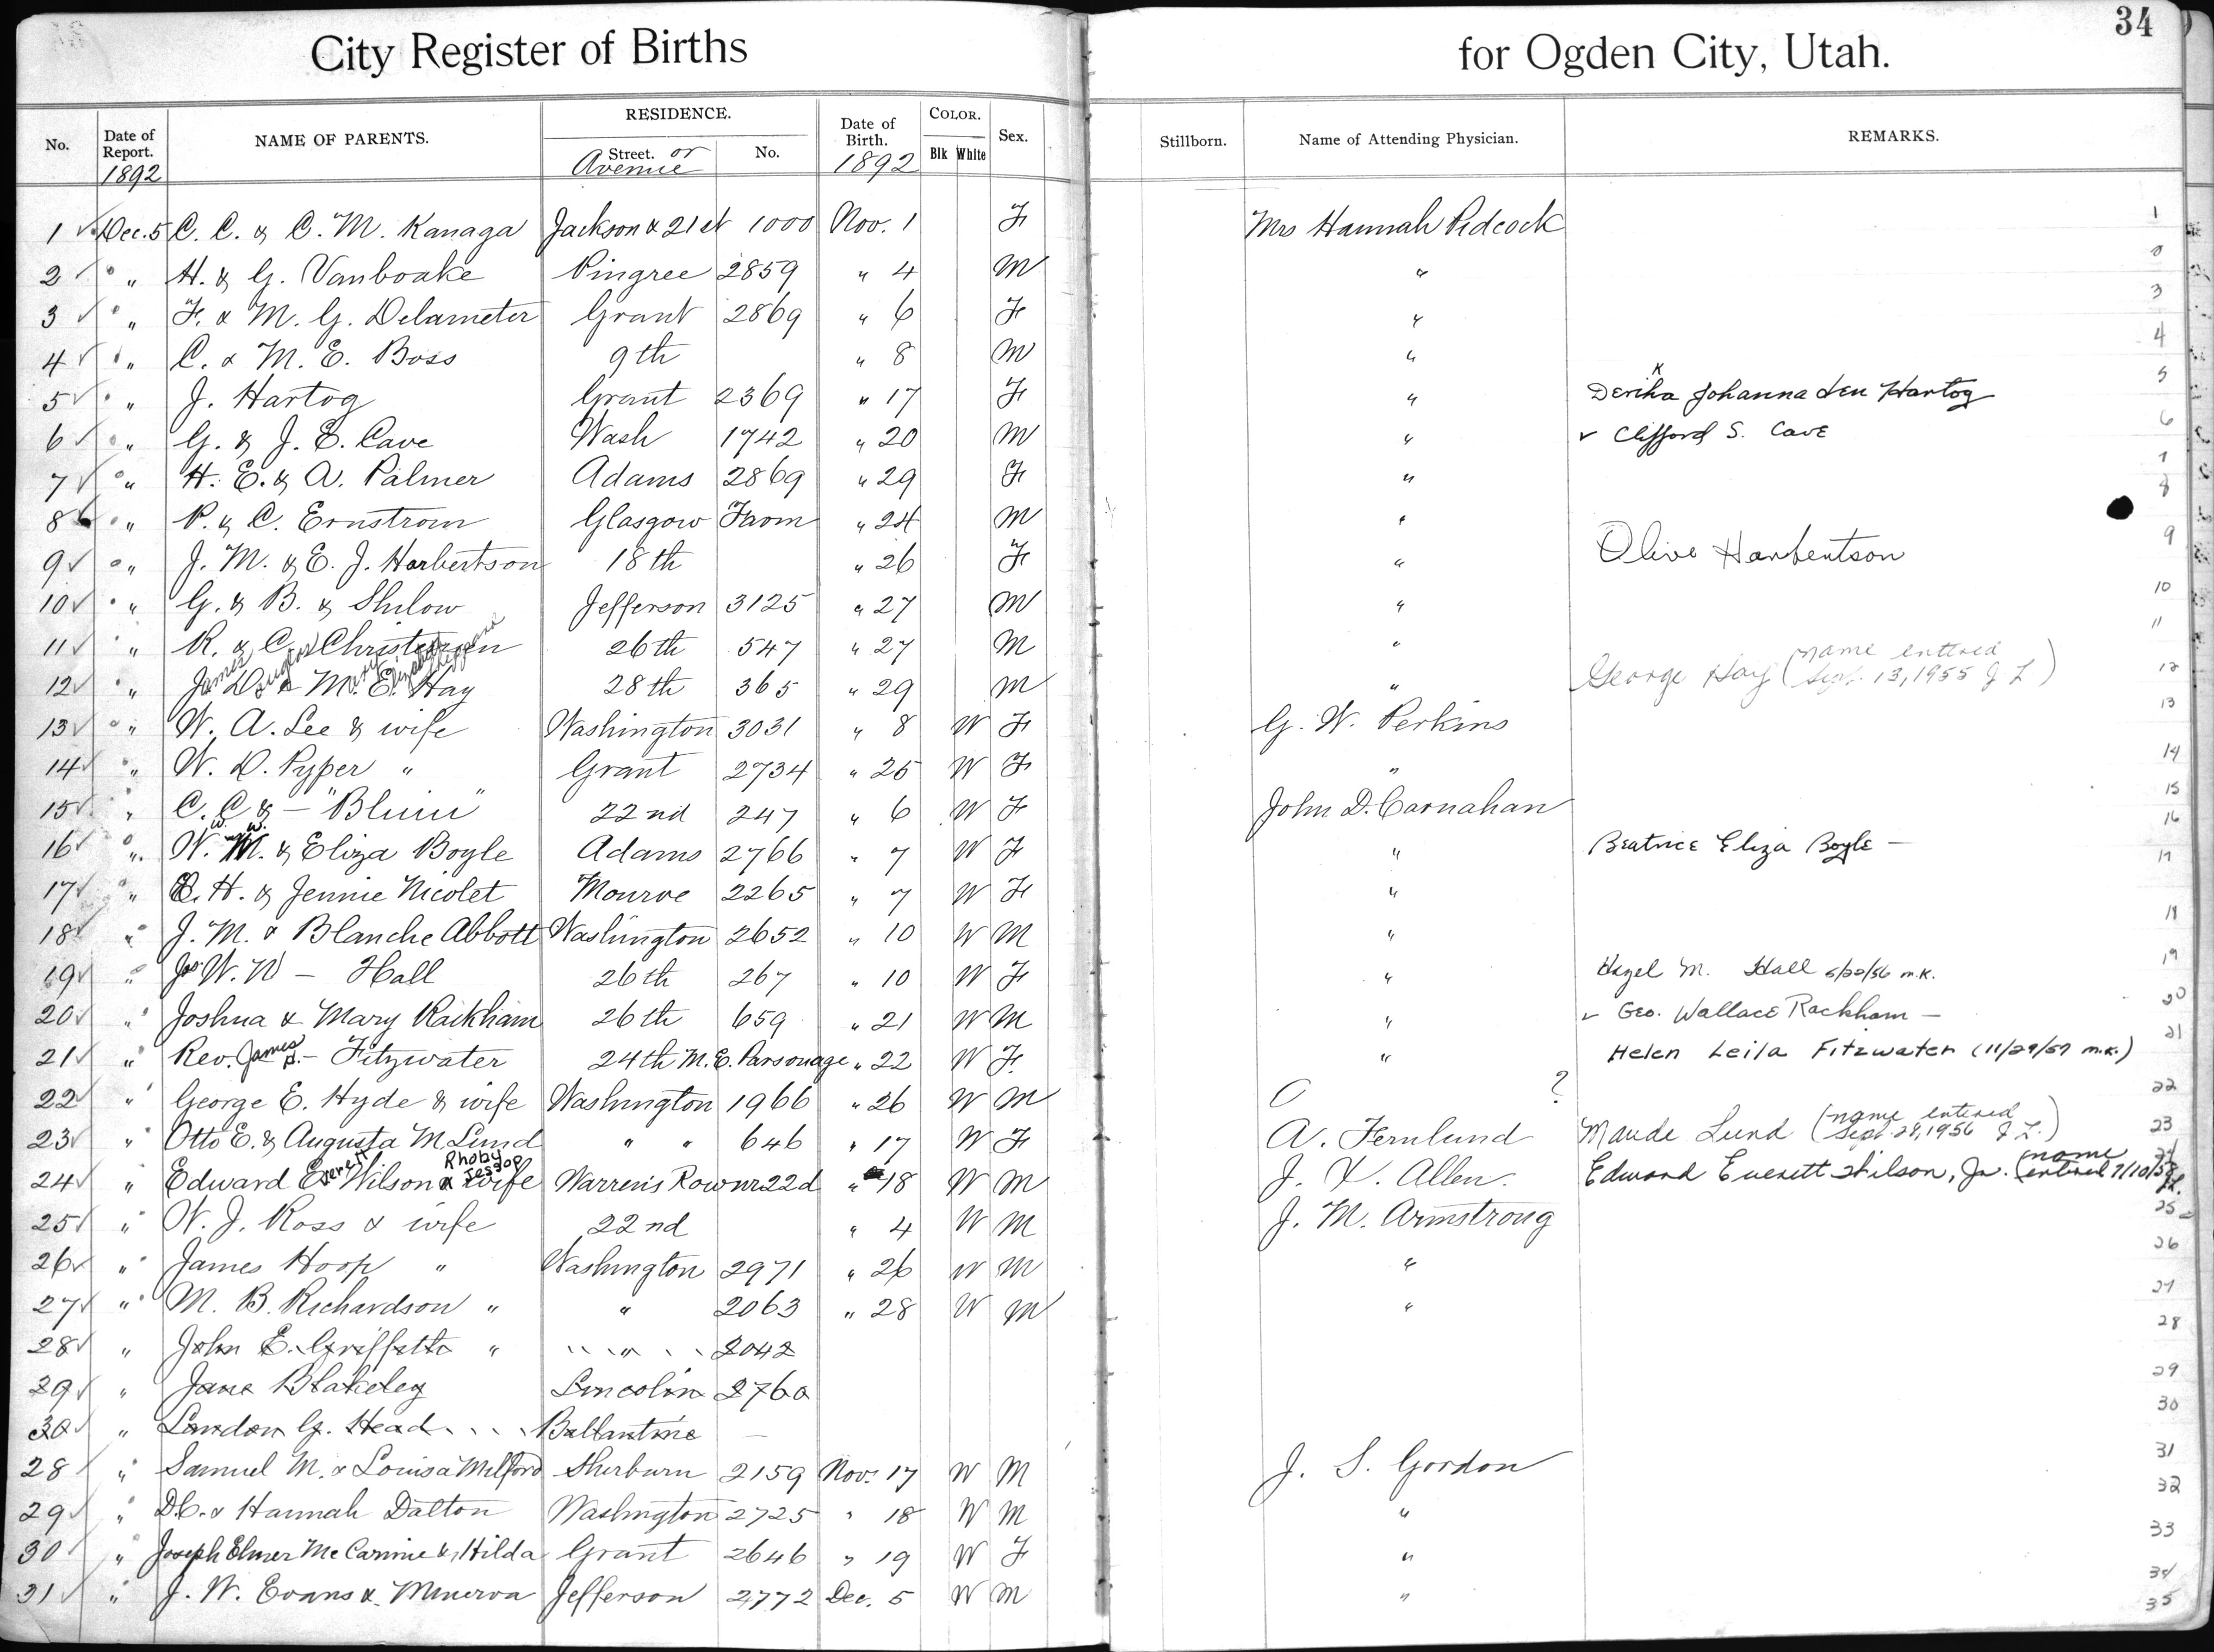 34
City Register of Births for Ogden City, Utah.
No. Date of Report. NAME OF PARENTS. RESIDENCE. Street. No. Date of Birth. COLOR. Blk White Sex. Stillborn. Name of Attending Physician. REMARKS.
1892 or Avenue 1892
1 ✓ Dec. 5 C. C. & C. M. Kanaga Jackson & 21st 1000 Nov. 1 F Mrs Hannah Pidcock 1
2 ✓ " H. & G. Vanboake Pingree 2859 " 4 M "
3 ✓ " F. & M. G. Delameter Grant 2869 " 6 F " 3
4 ✓ " C. & M. E. Boss 9th " 8 M " 4
5 ✓ " J. Hartog Grant 2369 " 17 F " Derika Johanna den Hartog 5
6 ✓ " G. & J. E. Cave Wash 1742 " 20 M " ✓ Clifford S. Cave 6
7 ✓ " H. E. & A. Palmer Adams 2869 " 29 F " 7
8 " P. & C. Ernstrom Glasgow Farm " 24 M " 8
9 ✓ " J. M. & E. J. Harbertson 18th " 26 F " Olive Harbertson 9
10 ✓ " G. & B. & Shilow Jefferson 3125 " 27 M " 10
11 ✓ " R. & C. Christensen 26th 547 " 27 M " 11
12 ✓ " James Douglas & Mary Elizabeth Sheppard Hay 28th 365 " 29 M " George Hay (name entered Sept. 13, 1955 J L) 12
13 ✓ " W. A. Lee & wife Washington 3031 " 8 W F G. W. Perkins 13
14 ✓ " W. D. Pyper " Grant 2734 " 25 W F " 14
15 ✓ " C. C. & — "Blum" 22nd 247 " 6 W F John D. Carnahan 15
16 ✓ " W. W. & Eliza Boyle Adams 2766 " 7 W F " Beatrice Eliza Boyle — 16
17 ✓ " E. H. & Jennie Nicolet Monroe 2265 " 7 W F " 17
18 ✓ " J. M. & Blanche Abbott Washington 2652 " 10 W M " 18
19 ✓ " Jos W. W — Hall 26th 267 " 10 W F " Hazel M. Hall 5/22/56 m.k. 19
20 ✓ " Joshua & Mary Rackham 26th 659 " 21 W M " ✓ Geo. Wallace Rackham — 20
21 ✓ " Rev. James — Fitzwater 24th M. E. Parsonage " 22 W F " Helen Leila Fitzwater (11/29/57 m.k.) 21
22 ✓ " George E. Hyde & wife Washington 1966 " 26 W M ? 22
23 ✓ " Otto E. & Augusta M Lund " " 646 " 17 W F A. Fernlund Maude Lund (name entered Sept 29, 1956 J L.) 23
24 ✓ " Edward Everett Wilson & Rhoby Jessop wife Warren's Row nr 22d " 18 W M J. X. Allen. Edward Everett Wilson, Jr. (name entered 7/10/58 JL. 24
25 ✓ " W. J. Ross & wife 22nd " 4 W M J. M. Armstrong 25
26 ✓ " James Hoop " Washington 2971 " 26 W M " 26
27 ✓ " M. B. Richardson " " 2063 " 28 W M " 27
28 ✓ " John E. Griffeth " " 2042 28
29 ✓ " Jane Blakeley Lincoln 2760 29
30 ✓ " Landon G. Head Ballantine 30
28 ✓ " Samuel M. & Louisa Milford Sherburn 2159 Nov. 17 W M J. S. Gordon 31
29 ✓ " D.C. & Hannah Dalton Washington 2725 " 18 W M " 32
30 ✓ " Joseph Elmer McCarnie & Hilda Grant 2646 " 19 W F " 33
31 ✓ " J. W. Evans & Minerva Jefferson 2772 Dec. 5 W M " 34
35